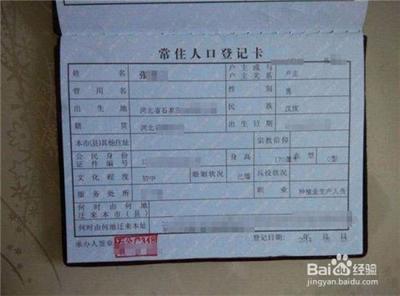 常住人口登记卡
姓 名 张 户主或与户主关系 户主
曾用名 性别 男
出生地 河北省石家 民族 汉族
籍贯 河北 出生日期
本市(县)其他住址 宗教信仰
公民身份证件编号 身高 血型
文化程度 初中 婚姻状况 已婚 兵役状况
服务处所 职业 种植业生产人员
何时由何地迁来本市(县)
何时由何地迁来本址
承办人签章 登记日期:
Baidu 经验
jingyan.baidu.com